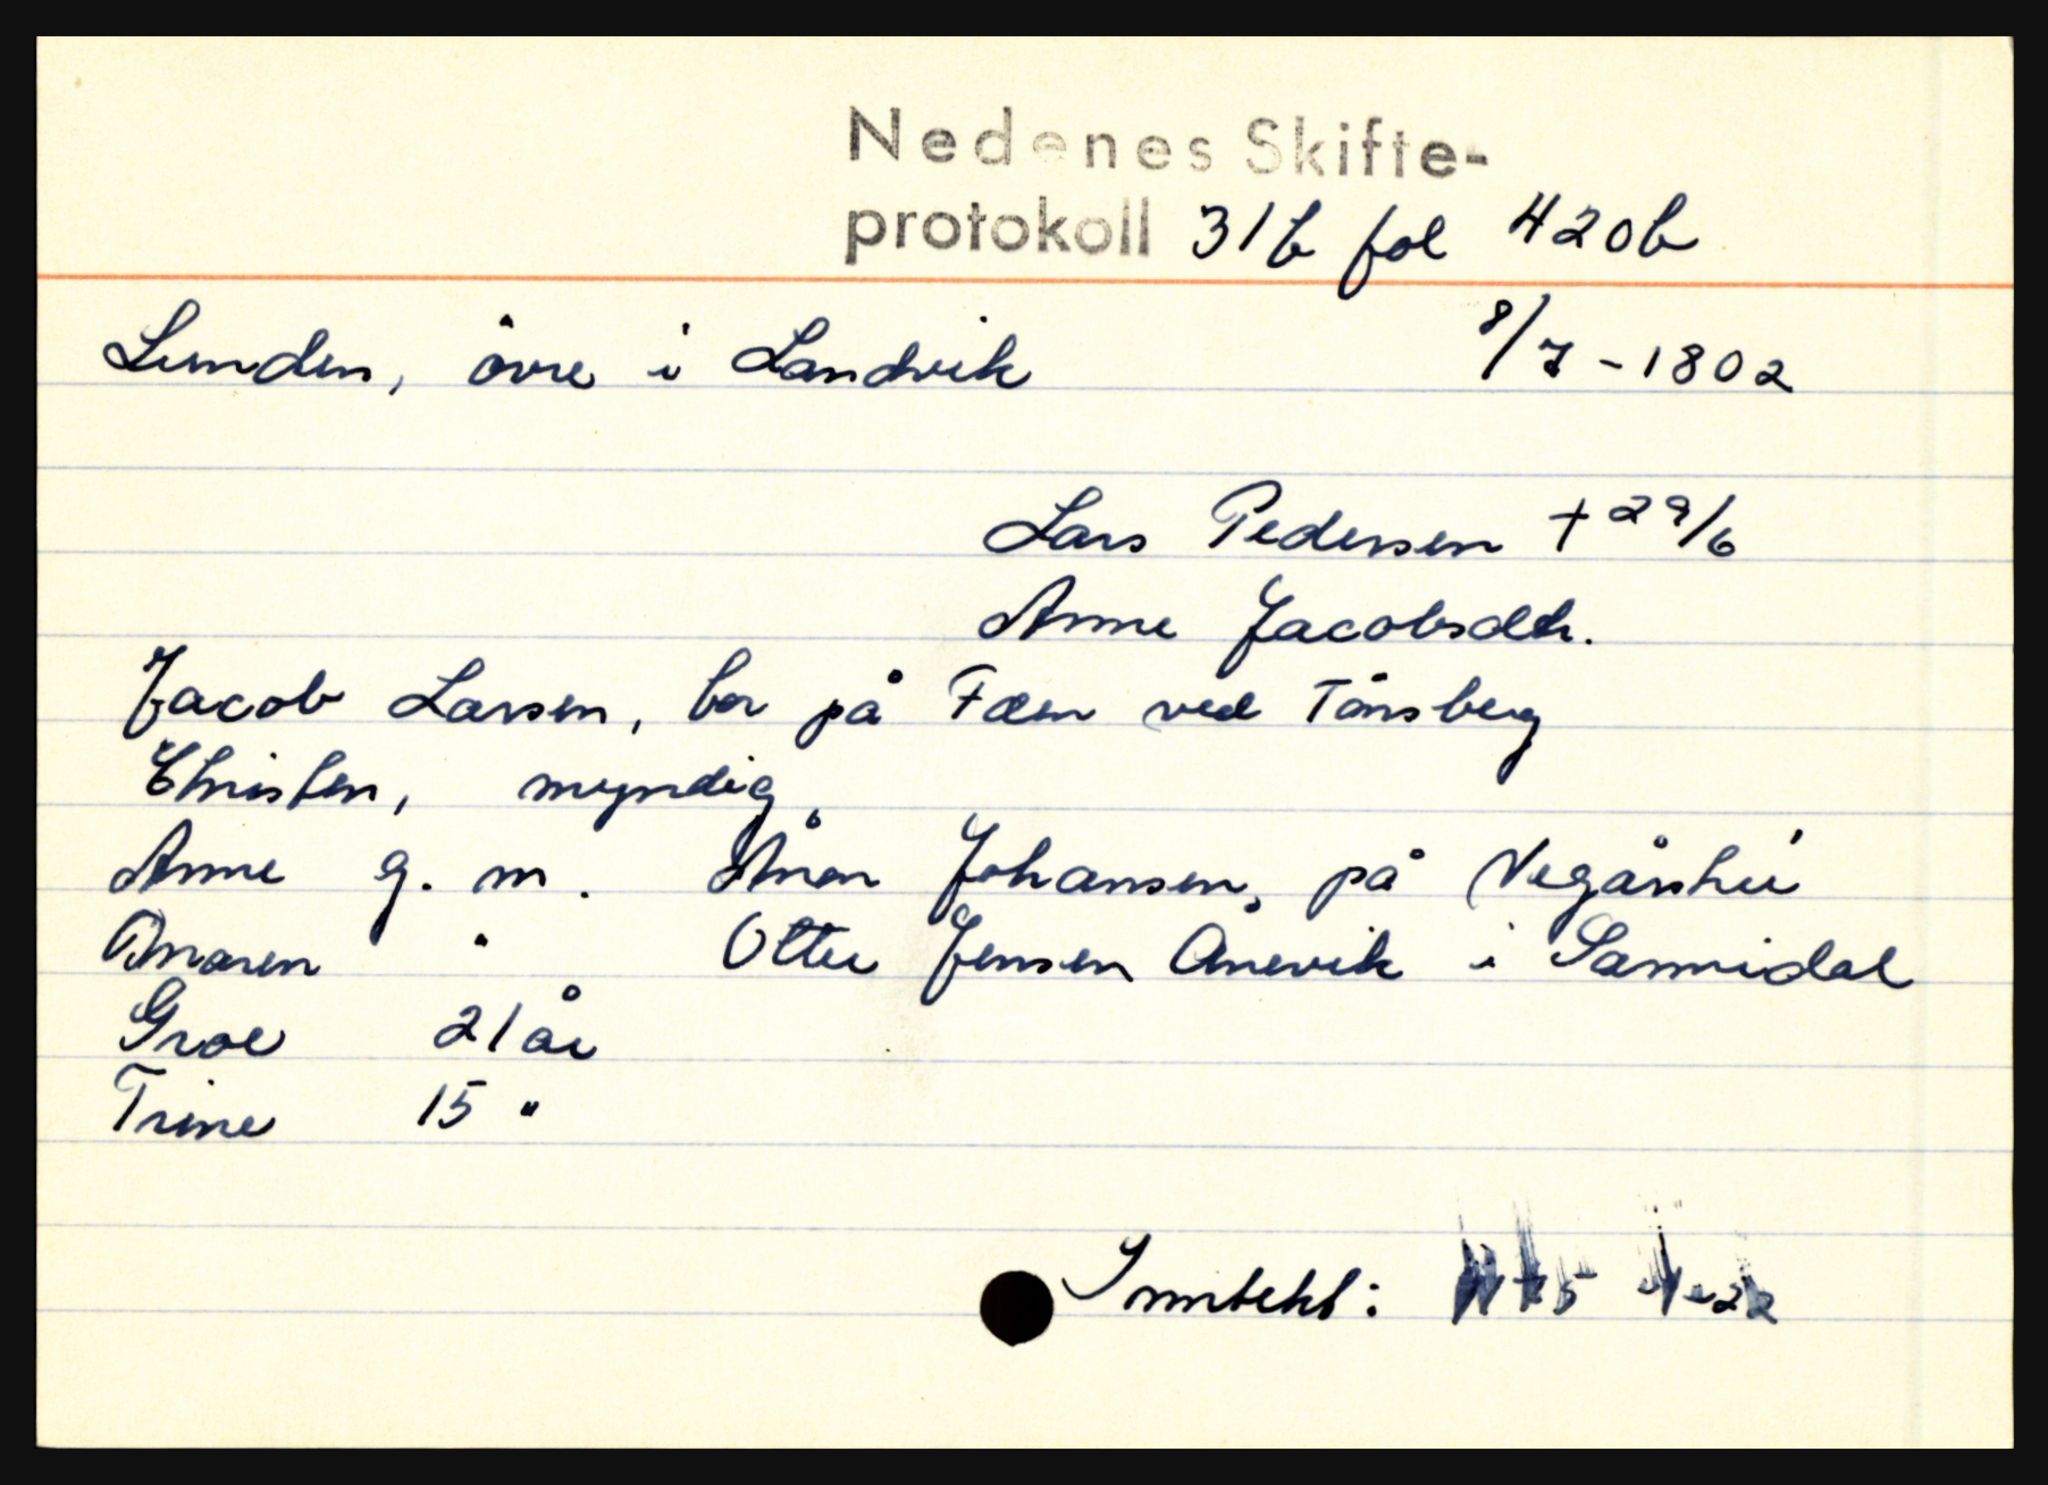 Nedenes Skifte-
protokoll 31b fol 420b
Lunden, övre i Landvik 8/7-1802
Lars Pedersen + 29/6
Anne Jacobsdtr.
Jacob Larsen, bor på Fæen ved Tönsberg
Christen, myndig
Anne g. m. Ånon Johansen, på Vegårshei
Maren " Otter Jensen Ånevik i Sannidal
Groe 21 år
Trine 15 "
Inntekt: